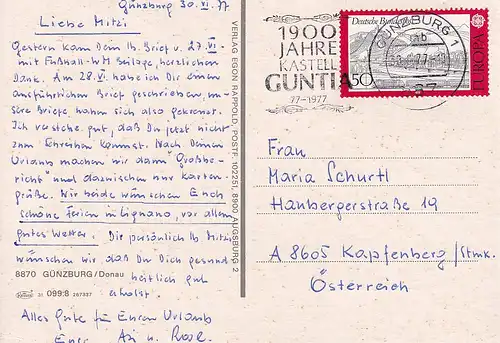 Günzburg 30.VI.77
Liebe Mitzi
Gestern kam Dein lb. Brief v. 27.VI.
mit Fußball-WM Beilage, herzlichen
Dank. Am 28.VI. habe ich Dir einen
ausführlichen Brief geschrieben, un-
sere Briefe haben sich also gekreuzt.
Ich verstehe gut, daß Du jetzt nicht
zum Schreiben kommst. Nach Deinem
Urlaub machen wir dann "Großbe-
richt" und dazwischen nur Karten-
grüße. Wir beide wünschen Euch
schöne Ferien in Lignano, vor allem
gutes Wetter. Dir persönlich lb. Mitzi
wünschen wir daß Du Dich gesund-
heitlich gut
erholst.
Alles Gute für Euren Urlaub
Eure
8870 GÜNZBURG/Donau
31 099:8 267337
VERLAG EGON RAPPOLD, POSTF. 102251, 8900 AUGSBURG 2
1900
JAHRE
KASTELL
GUNTIA
77-1977
GÜNZBURG 1
Deutsche Bundespost
50
EUROPA
Frau
Maria Schurtl
Haubergerstraße 19
A 8605 Kapfenberg/Stmk.
Österreich